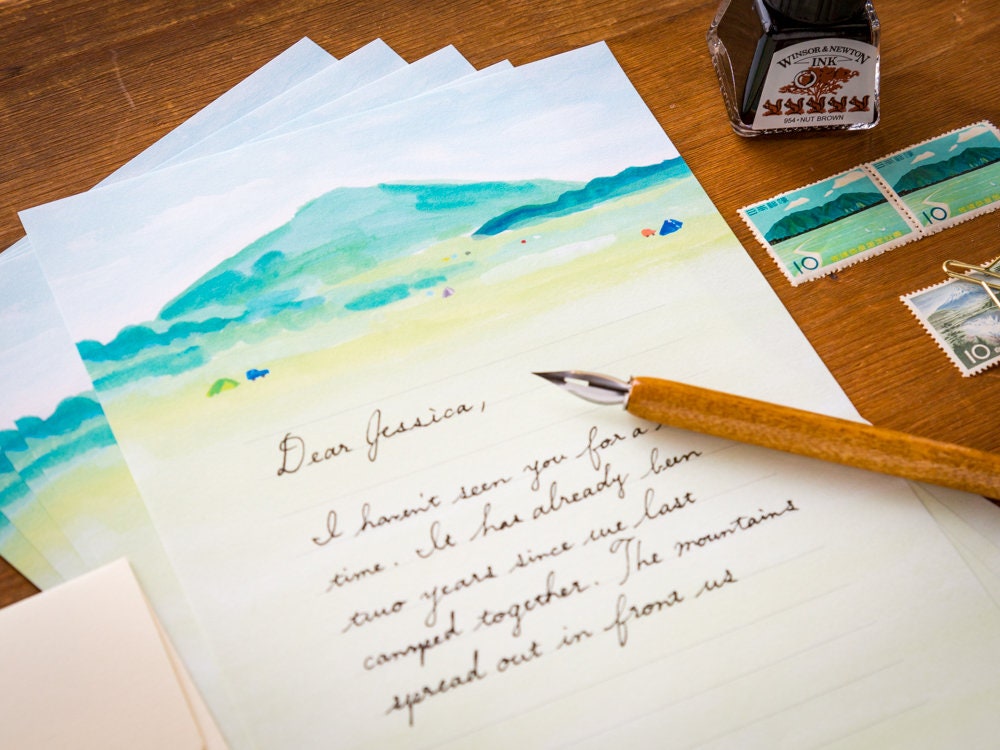 WINSOR & NEWTON
INK
954 • NUT BROWN
日本郵便
10
10
10
Dear Jessica,
I haven't seen you for a
time. It has already been
two years since we last
camped together. The mountains
spread out in front us